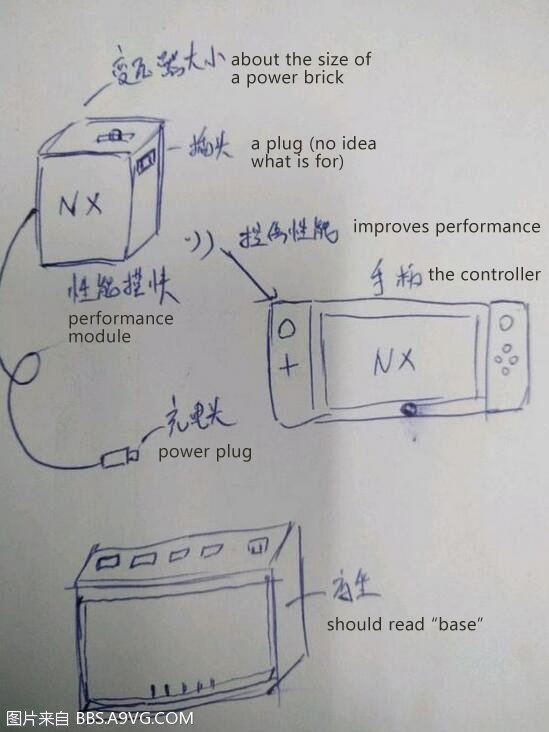 变压器大小 about the size of
a power brick
插头 a plug (no idea
what is for)
NX
提高性能 improves performance
手柄 the controller
性能模快
performance
module
NX
充电头
power plug
should read "base"
图片来自 BBS.A9VG.COM